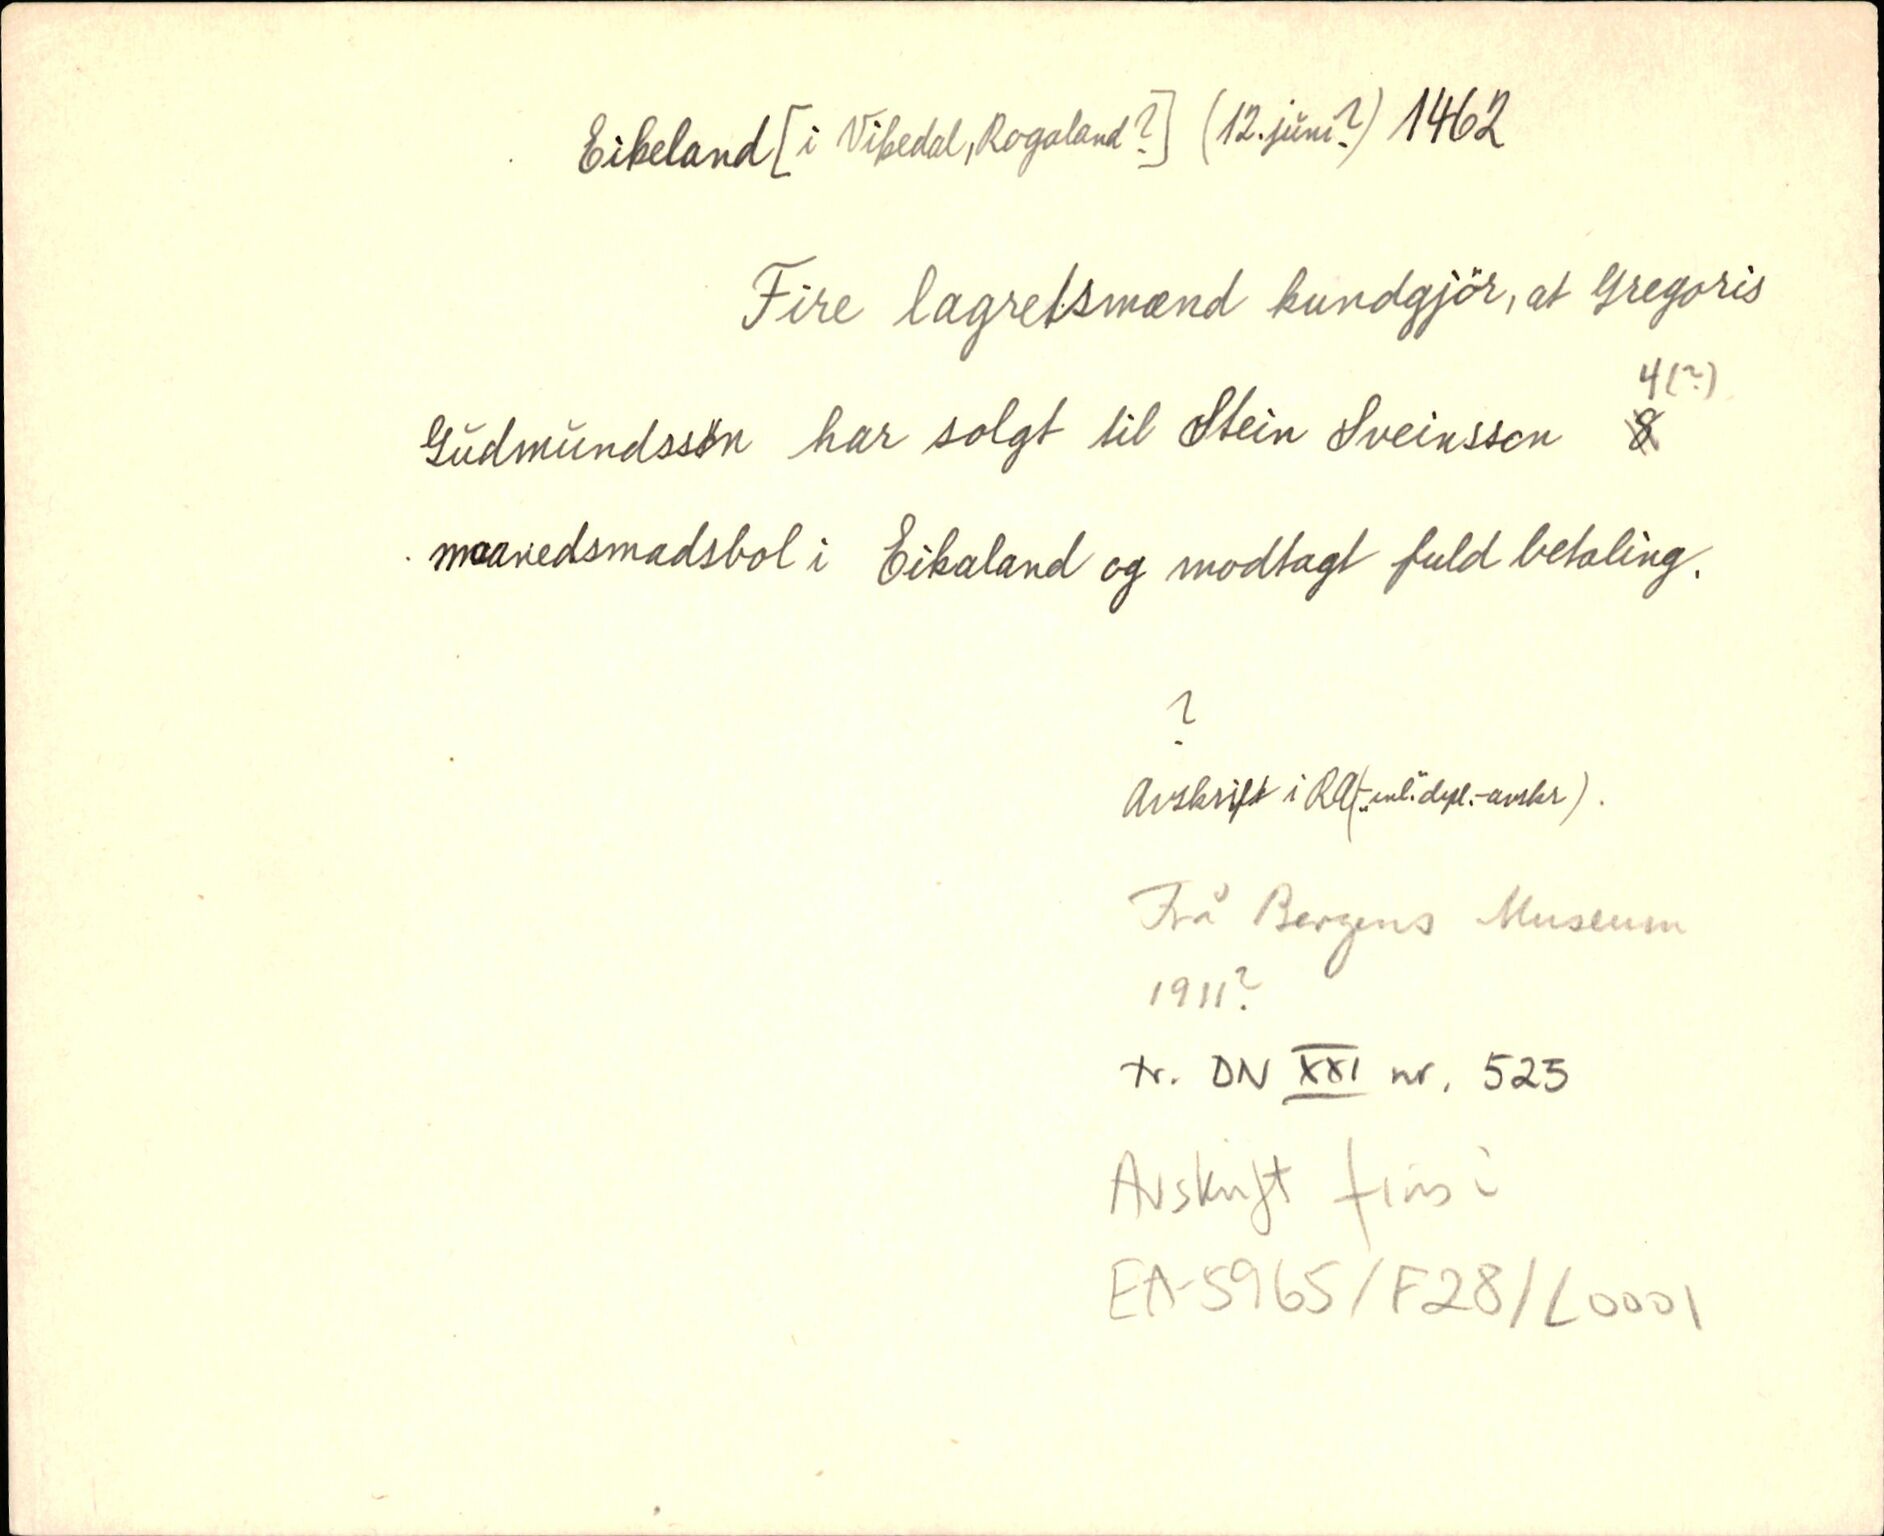 Eikeland [i Vikedal, Rogaland?] (12. juni?) 1462
Fire lagretsmænd kundgjör, at Gregoris
4(?)
Gudmundssön har solgt til Stein Sveinsson 8
maanedsmadsbol i Eikaland og modtagt fuld betaling.
?
Avskrift i RA ( dipl.-avskr).
Frå Bergens Museum
1911?
tr. DN XXI nr. 525
Avskrift fins i
EA-5965/F28/L0001